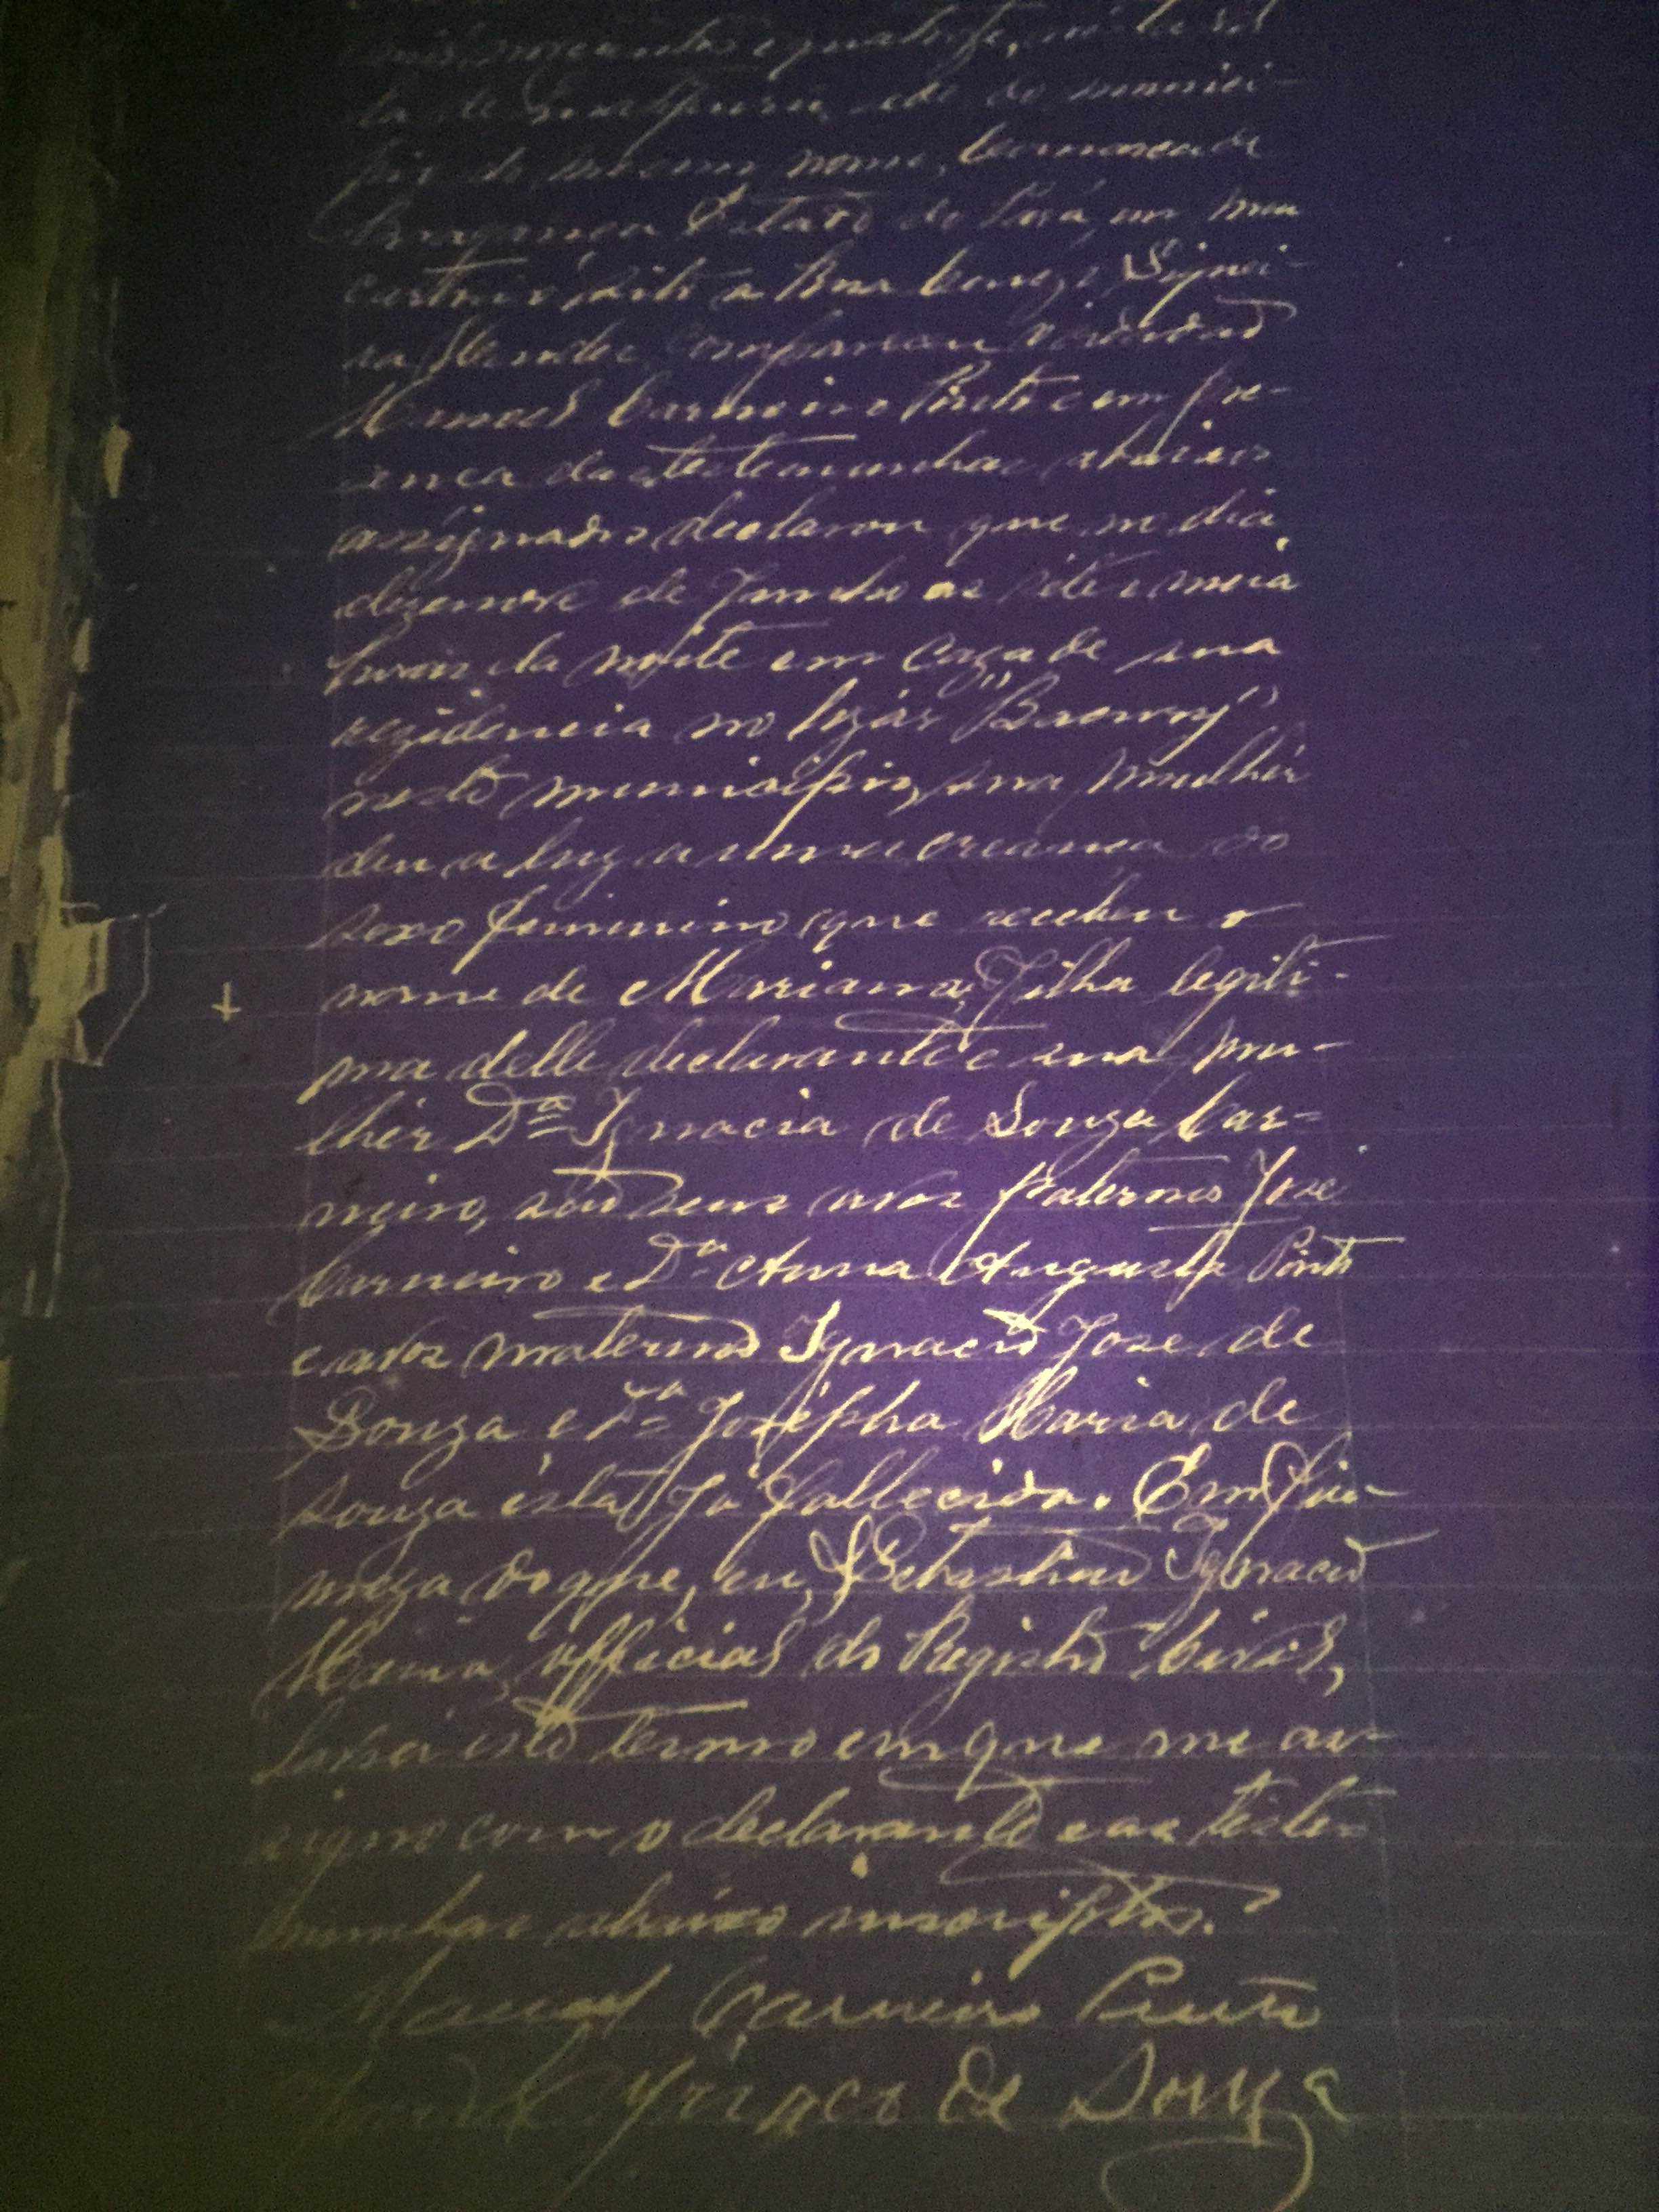 novecentos e quatorze, nesta vil-
la de Quatipurú, séde do munici-
pio do mesmo nome, Comarca de
Bragança Estado do Pará, em meu
cartorio sito a Rua
compareceu o cidadão
Manoel Carneiro Pinto e em pre-
sença das testemunhas abaixo
assignados declarou que no dia
dezenove de Junho as sete e meia
horas da noite em caza de sua
rezidencia no lugár
neste municipio, sua mulhér
deu a luz a uma creança do
sexo feminino que recebeu o
nome de Mariana, filha legiti-
ma delle declarante e sua mu-
lhér Dª Ignacia de Souza Car-
neiro, são seus avos paternos José
Carneiro e Dª Anna Augusta Pinto
e avos maternos Ignacio Jose de
Souza e Dª Josépha Maria de
Souza ésta já fallecida. Em fir-
meza do que, eu, Sebastião Ignacio
official do Registro Civil,
lavrei este termo em que me as-
signo com o declarante e as teste-
munhas abaixo inscriptas.
Manoel Carneiro Pinto
de Souza